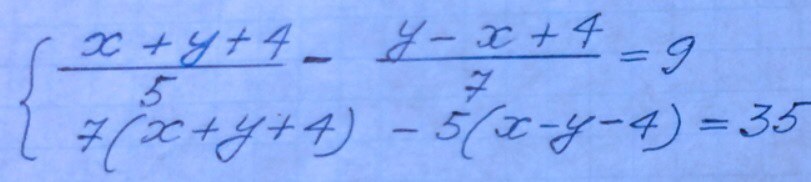 { (x + y + 4)/5 - (y - x + 4)/7 = 9
7(x + y + 4) - 5(x - y - 4) = 35